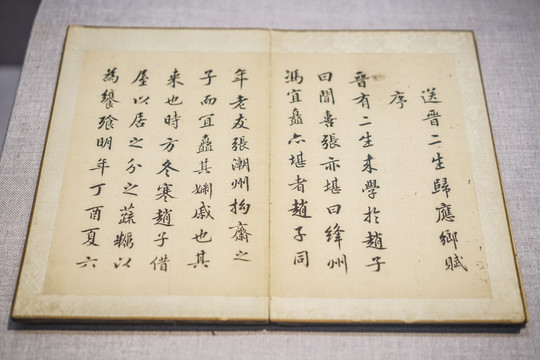 送晉二生歸應鄉賦
序
晉有二生來學於趙子
曰聞喜張亦堪曰絳州
馮宜矗亦堪者趙子同
年老友張潮州拗齋之
子而宜矗其姻戚也其
来也時方冬寒趙子借
屋以居之分之蔬糲以
為饔飧明年丁酉夏六